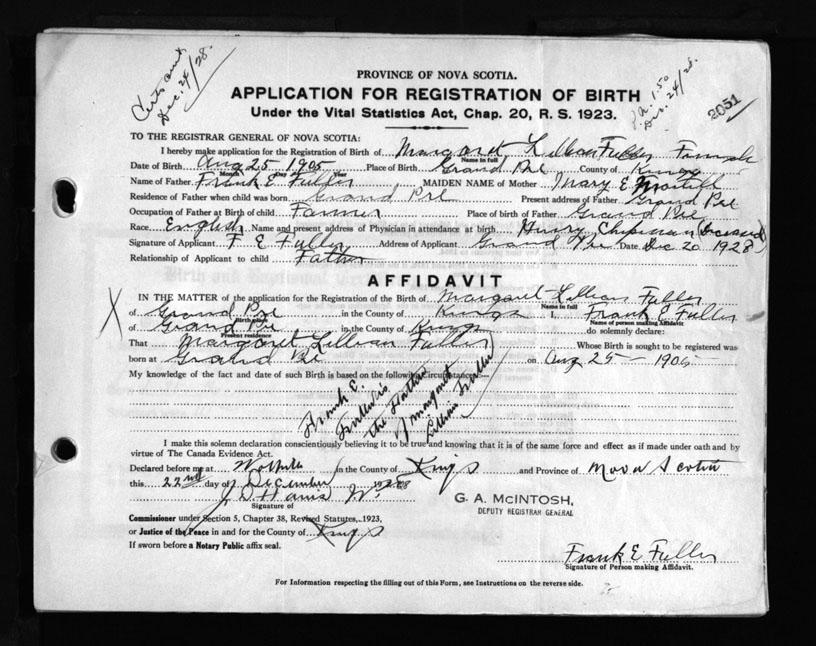 Certs out
Dec. 24/28.
P.A. 1.50
Dec. 24/28.
2051
PROVINCE OF NOVA SCOTIA.
APPLICATION FOR REGISTRATION OF BIRTH
Under the Vital Statistics Act, Chap. 20, R. S. 1923.
TO THE REGISTRAR GENERAL OF NOVA SCOTIA:
I hereby make application for the Registration of Birth of Margaret Lillian Fuller Female
Name in full
Date of Birth Aug 25 1905 Place of Birth Grand Pre County of Kings
Month Day Year
Name of Father Frank E Fuller MAIDEN NAME of Mother Mary E
Residence of Father when child was born Grand Pre Present address of Father Grand Pre
Occupation of Father at Birth of child Farmer Place of birth of Father Grand Pre
Race English Name and present address of Physician in attendance at birth Henry Chipman (Deceased)
Signature of Applicant F E Fuller Address of Applicant Grand Pre Date Dec 20 1928
Relationship of Applicant to child Father
AFFIDAVIT
X
IN THE MATTER of the application for the Registration of the Birth of Margaret Lillian Fuller
Name in full
of Grand Pre in the County of Kings I, Frank E Fuller
Birth place Name of person making Affidavit
of Grand Pre in the County of Kings do solemnly declare:
Present residence
That Margaret Lillian Fuller Whose Birth is sought to be registered was
born at Grand Pre on Aug 25 - 1905
My knowledge of the fact and date of such Birth is based on the following circumstances
Frank E.
Fuller is
the Father
of Margaret
Lillian Fuller
I make this solemn declaration conscientiously believing it to be true and knowing that it is of the same force and effect as if made under oath and by
virtue of The Canada Evidence Act.
Declared before me at Wolfville in the County of Kings and Province of Nova Scotia
this 22nd day of December 1928
Signature of
G. A. McINTOSH,
DEPUTY REGISTRAR GENERAL
Commissioner under Section 5, Chapter 38, Revised Statutes, 1923,
or Justice of the Peace in and for the County of Kings
If sworn before a Notary Public affix seal.
Frank E Fuller
Signature of Person making Affidavit.
For Information respecting the filling out of this Form, see Instructions on the reverse side.